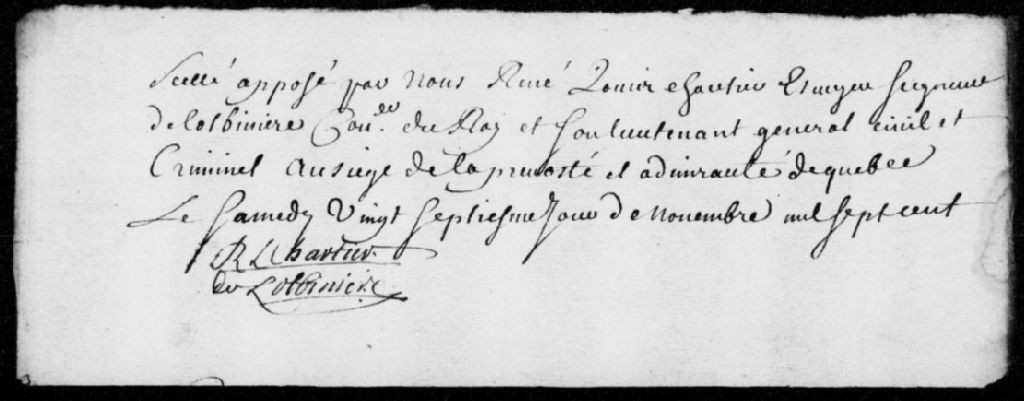 Scellé apposé par Nous René Louis Chartier Escuyer Seigneur
de lotbiniere Con.er du Roy et son lieutenant general civil et
Criminel au siege de la prevosté et admirauté de quebec
Le Samedy Vingt Septiesme Jour de Novembre mil sept cent
RL Chartier
de Lotbiniere